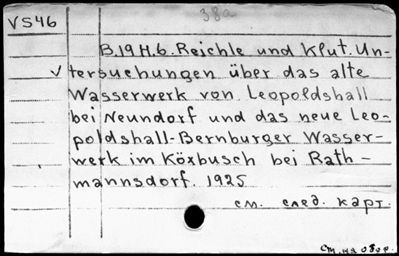 38a
VS46
B.19 H.6. Reichle und Klut. Un-
v tersuchungen über das alte
Wasserwerk von Leopoldshall
bei Neundorf und das neue Leo-
poldshall-Bernburger Wasser-
werk imKöxbusch bei Rath-
mannsdorf. 1925
см. след. карт.
см. на обор.